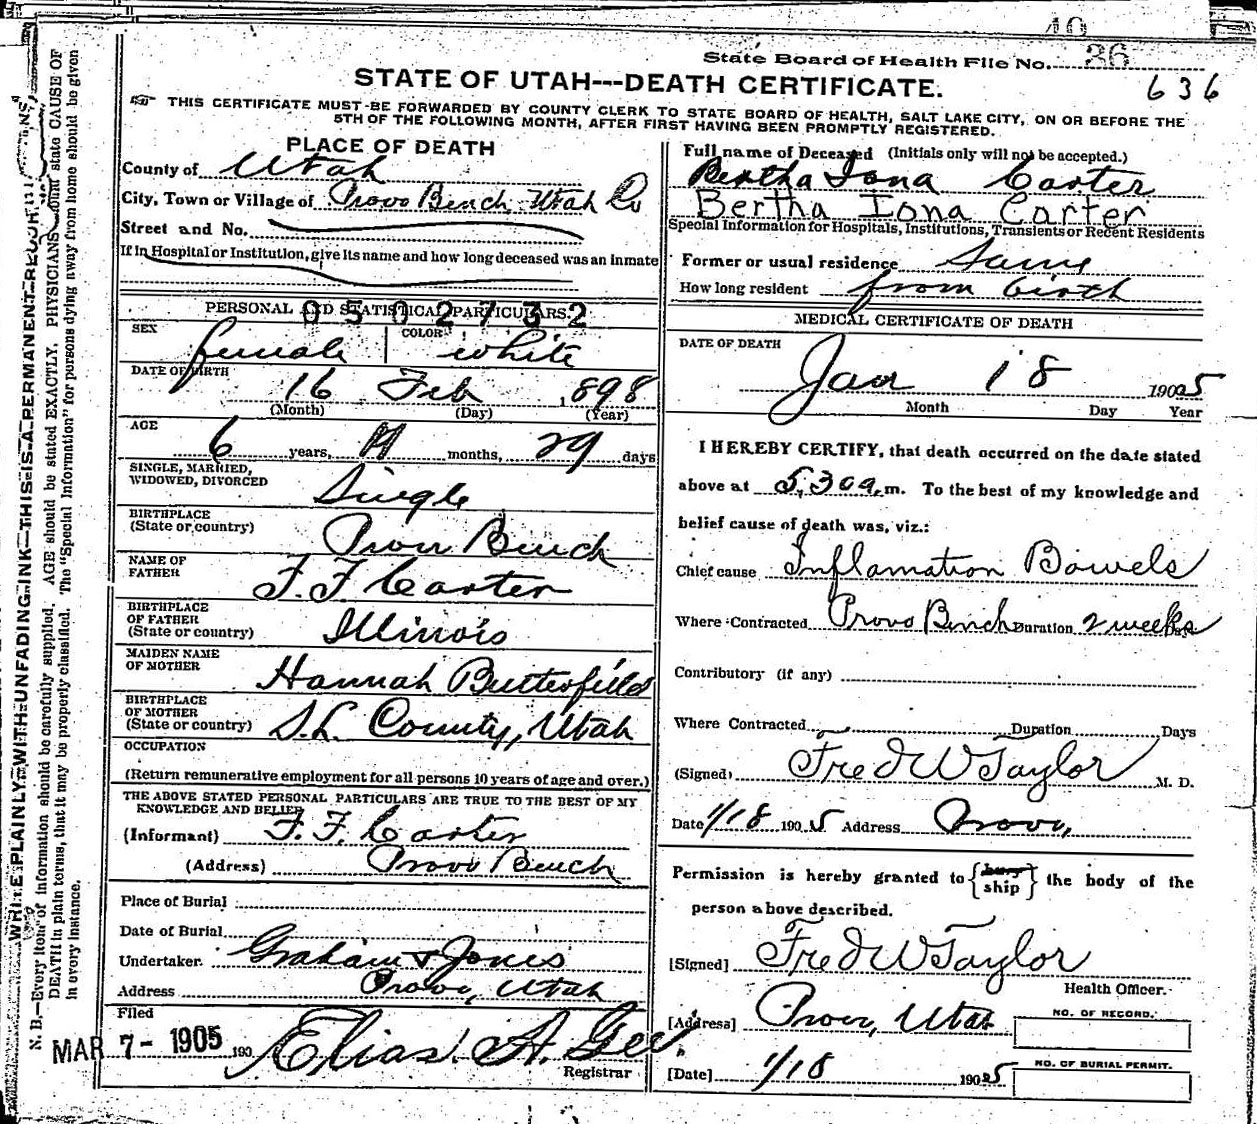 40
State Board of Health File No. 36
636
STATE OF UTAH---DEATH CERTIFICATE.
THIS CERTIFICATE MUST BE FORWARDED BY COUNTY CLERK TO STATE BOARD OF HEALTH, SALT LAKE CITY, ON OR BEFORE THE
5TH OF THE FOLLOWING MONTH, AFTER FIRST HAVING BEEN PROMPTLY REGISTERED.
PLACE OF DEATH
County of Utah
City, Town or Village of Provo Bench Utah Co
Street and No.
If in Hospital or Institution, give its name and how long deceased was an inmate
PERSONAL AND STATISTICAL PARTICULARS.
0502732
SEX female
COLOR white
DATE OF BIRTH 16 Feb 1898
(Month) (Day) (Year)
AGE 6 years, months, 29 days
SINGLE, MARRIED,
WIDOWED, DIVORCED Single
BIRTHPLACE
(State or country) Provo Bench
NAME OF
FATHER F. F. Carter
BIRTHPLACE
OF FATHER
(State or country) Illinois
MAIDEN NAME
OF MOTHER Hannah Butterfield
BIRTHPLACE
OF MOTHER
(State or country) S.L. County, Utah
OCCUPATION
(Return remunerative employment for all persons 10 years of age and over.)
THE ABOVE STATED PERSONAL PARTICULARS ARE TRUE TO THE BEST OF MY
KNOWLEDGE AND BELIEF
(Informant) F. F. Carter
(Address) Provo Bench
Place of Burial
Date of Burial
Undertaker. Graham & Jones
Address Provo, Utah
Filed
MAR 7- 1905 190 Elias. A. Gee
Registrar
Full name of Deceased (Initials only will not be accepted.)
Bertha Iona Carter
Bertha Iona Carter
Special Information for Hospitals, Institutions, Transients or Recent Residents
Former or usual residence Same
How long resident from birth
MEDICAL CERTIFICATE OF DEATH
DATE OF DEATH
Jan 18 1905
Month Day Year
I HEREBY CERTIFY, that death occurred on the date stated
above at 5,30 a, m. To the best of my knowledge and
belief cause of death was, viz.:
Chief cause Inflamation Bowels
Where Contracted Provo Bench Duration 2 weeks
Contributory (if any)
Where Contracted Duration Days
(Signed) Fred W Taylor M. D.
Date 1/18 1905 Address Provo,
Permission is hereby granted to {bury ship} the body of the
person above described.
[Signed] Fred W Taylor
Health Officer.
[Address] Provo, Utah
NO. OF RECORD.
[Date] 1/18 1905
NO. OF BURIAL PERMIT.
WRITE PLAINLY WITH UNFADING INK—THIS IS A PERMANENT RECORD
N. B.—Every item of information should be carefully supplied. AGE should be stated EXACTLY. PHYSICIANS should state CAUSE OF
DEATH in plain terms, that it may be properly classified. The "Special Information" for persons dying away from home should be given
in every instance.